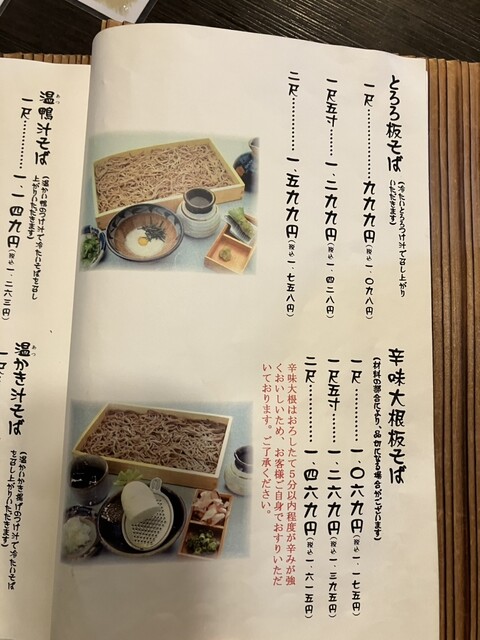 とろろ板そば
(冷たいとろろつけ汁で召し上がり
いただきます)
一尺…………九九九円(税込一・〇九八円)
一尺五寸……一・二九九円(税込一・四二八円)
二尺…………一・五九九円(税込一・七五八円)
辛味大根板そば
(材料の都合により、品切になる場合がございます)
一尺…………一・〇六九円(税込一・一七五円)
一尺五寸……一・二六九円(税込一・三九五円)
二尺…………一・四六九円(税込一・六一五円)
辛味大根はおろしたて５分以内程度が辛みが強
くおいしいため、お客様ご自身でおすりいただ
いております。ご了承ください。
温鴨汁そば
あつ
(温かい鴨のつけ汁で冷たいそばを召し
上がりいただきます)
一尺…………一・一四九円(税込一・二六三円)
温かき汁そば
あつ
(温かいかき揚げのつけ汁で冷たいそば
を召し上がりいただきます)